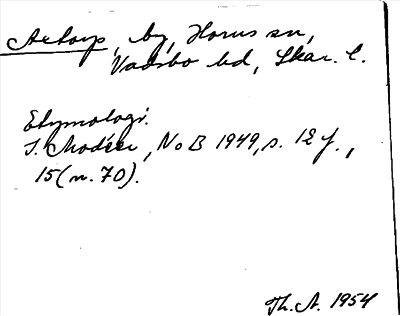 Aetorp, by, Horns sn,
Vadsbo hd, Skar. l.
Etymologi.
I. Modéer, NoB 1949, s. 12 f.,
15 (n. 70).
Th. A. 1954